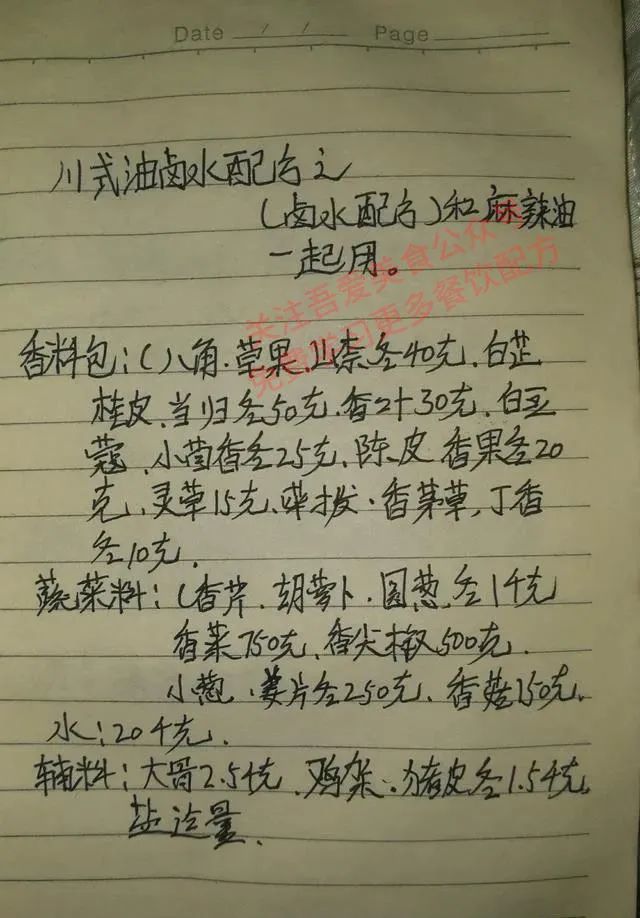 Date / / Page
川式油卤水配方之
(卤水配方)和麻辣油
一起用。
关注吾爱美食公众号
免费学习更多餐饮配方
香料包:(八角.草果.山柰各40克.白芷
桂皮、当归各50克.香叶30克、白豆
蔻、小茴香各25克、陈皮 香果各20
克、灵草15克、荜拨·香茅草,丁香
各10克.
蔬菜料:(香芹.胡萝卜·圆葱.各1千克
香菜750克、香尖椒500克.
小葱.姜片各250克.香菇150克.
水:20千克.
辅料:大骨2.5千克.鸡架·猪皮各1.5千克
盐适量.